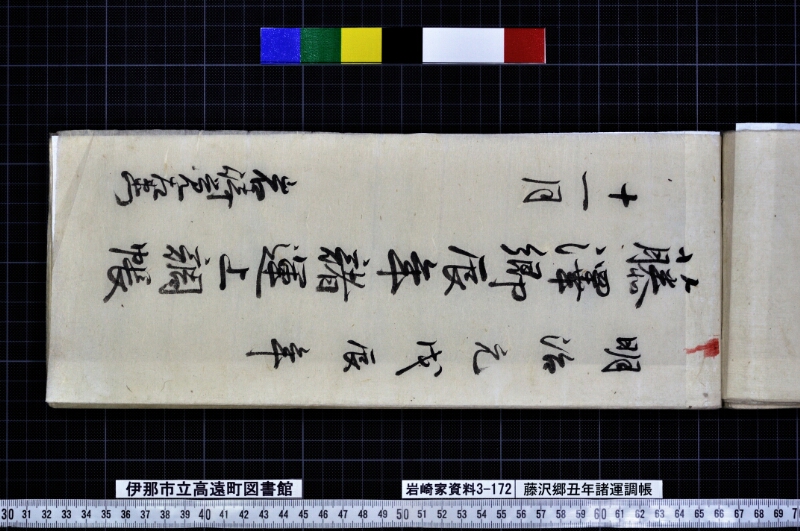 明治元戊辰年
藤澤郷辰年諸運上調帳
十一月
伊那市立高遠町図書館
岩崎家資料3-172
藤沢郷丑年諸運調帳
30 31 32 33 34 35 36 37 38 39 40 41 42 43 44 45 46 47 48 49 50 51 52 53 54 55 56 57 58 59 60 61 62 63 64 65 66 67 68 69